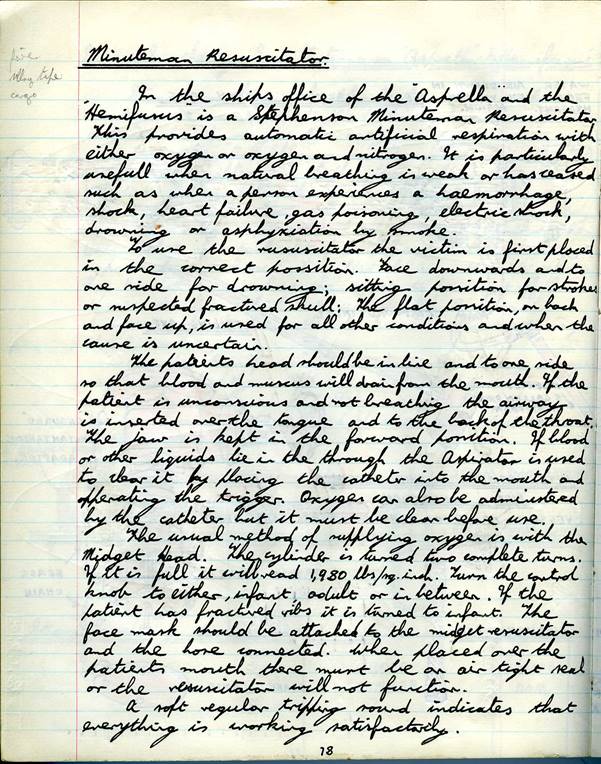 Minuteman Resuscitator.
In the ships office of the "Aspella" and the
"Hemifusus is a Stephenson Minuteman Resuscitator
This provides automatic artificial respiration with
either oxygen or oxygen and nitrogen. It is particularly
usefull when natural breathing is weak or has ceased
such as when a person experiences a haemorrhage,
shock, heart failure, gas poisoning, electric shock,
drowning or asphyxiation by smoke.
To use the resuscitator the victim is first placed
in the correct possition. Face downwards and to
one side for drowning; sitting possition for strokes
or suspected fractured skull: The flat position, on back
and face up, is used for all other conditions and when the
cause is uncertain.
The patients head should be in line and to one side
so that blood and muscus will drain from the mouth. If the
patient is unconscious and not breathing the airway
is inserted over the tongue and to the back of the throat.
The jaw is kept in the forward position. If blood
or other liquids lie in the through the Aspirator is used
to clear it by placing the catheter into the mouth and
opperating the trigger. Oxygen can also be administered
by the catheter but it must be clear before use.
The usual method of supplying oxygen is with the
Midget Head. The cylinder is turned two complete turns.
If it is full it will read 1,980 lbs/sq.inch. Turn the control
knob to either, infant, adult or in between. If the
patient has fractured ribs it is turned to infant. The
face mask should be attached to the midget resuscitator
and the hose connected. When placed over the
patients mouth there must be an air tight seal
or the resuscitator will not function.
A soft regular tripping sound indicates that
everything is working satisfactorily.
18